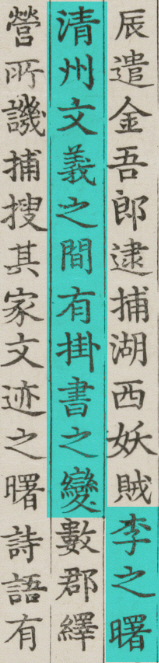 辰遣金吾郎逮捕湖西妖賊李之曙
清州文義之間有掛書之變數郡繹
營所譏捕搜其家文迹之曙詩語有